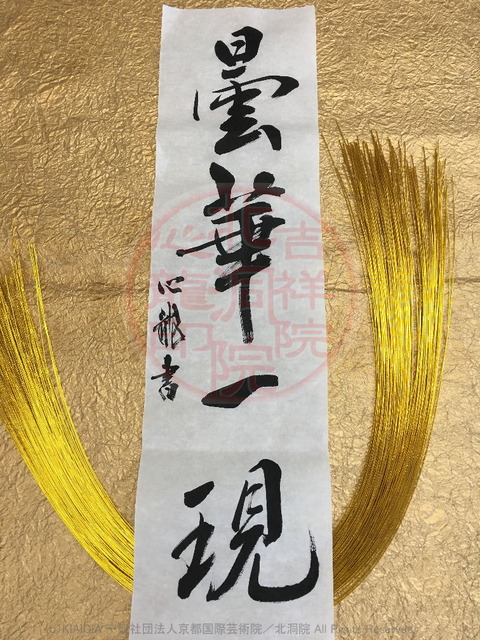 曇華一現
心龍書
吉祥院
北洞院
心龍印
(c) KIAIDIA 一般社団法人京都国際芸術院／北洞院 All Rights Reserved.